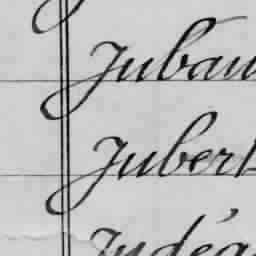 Juban
Jubert
Judéa